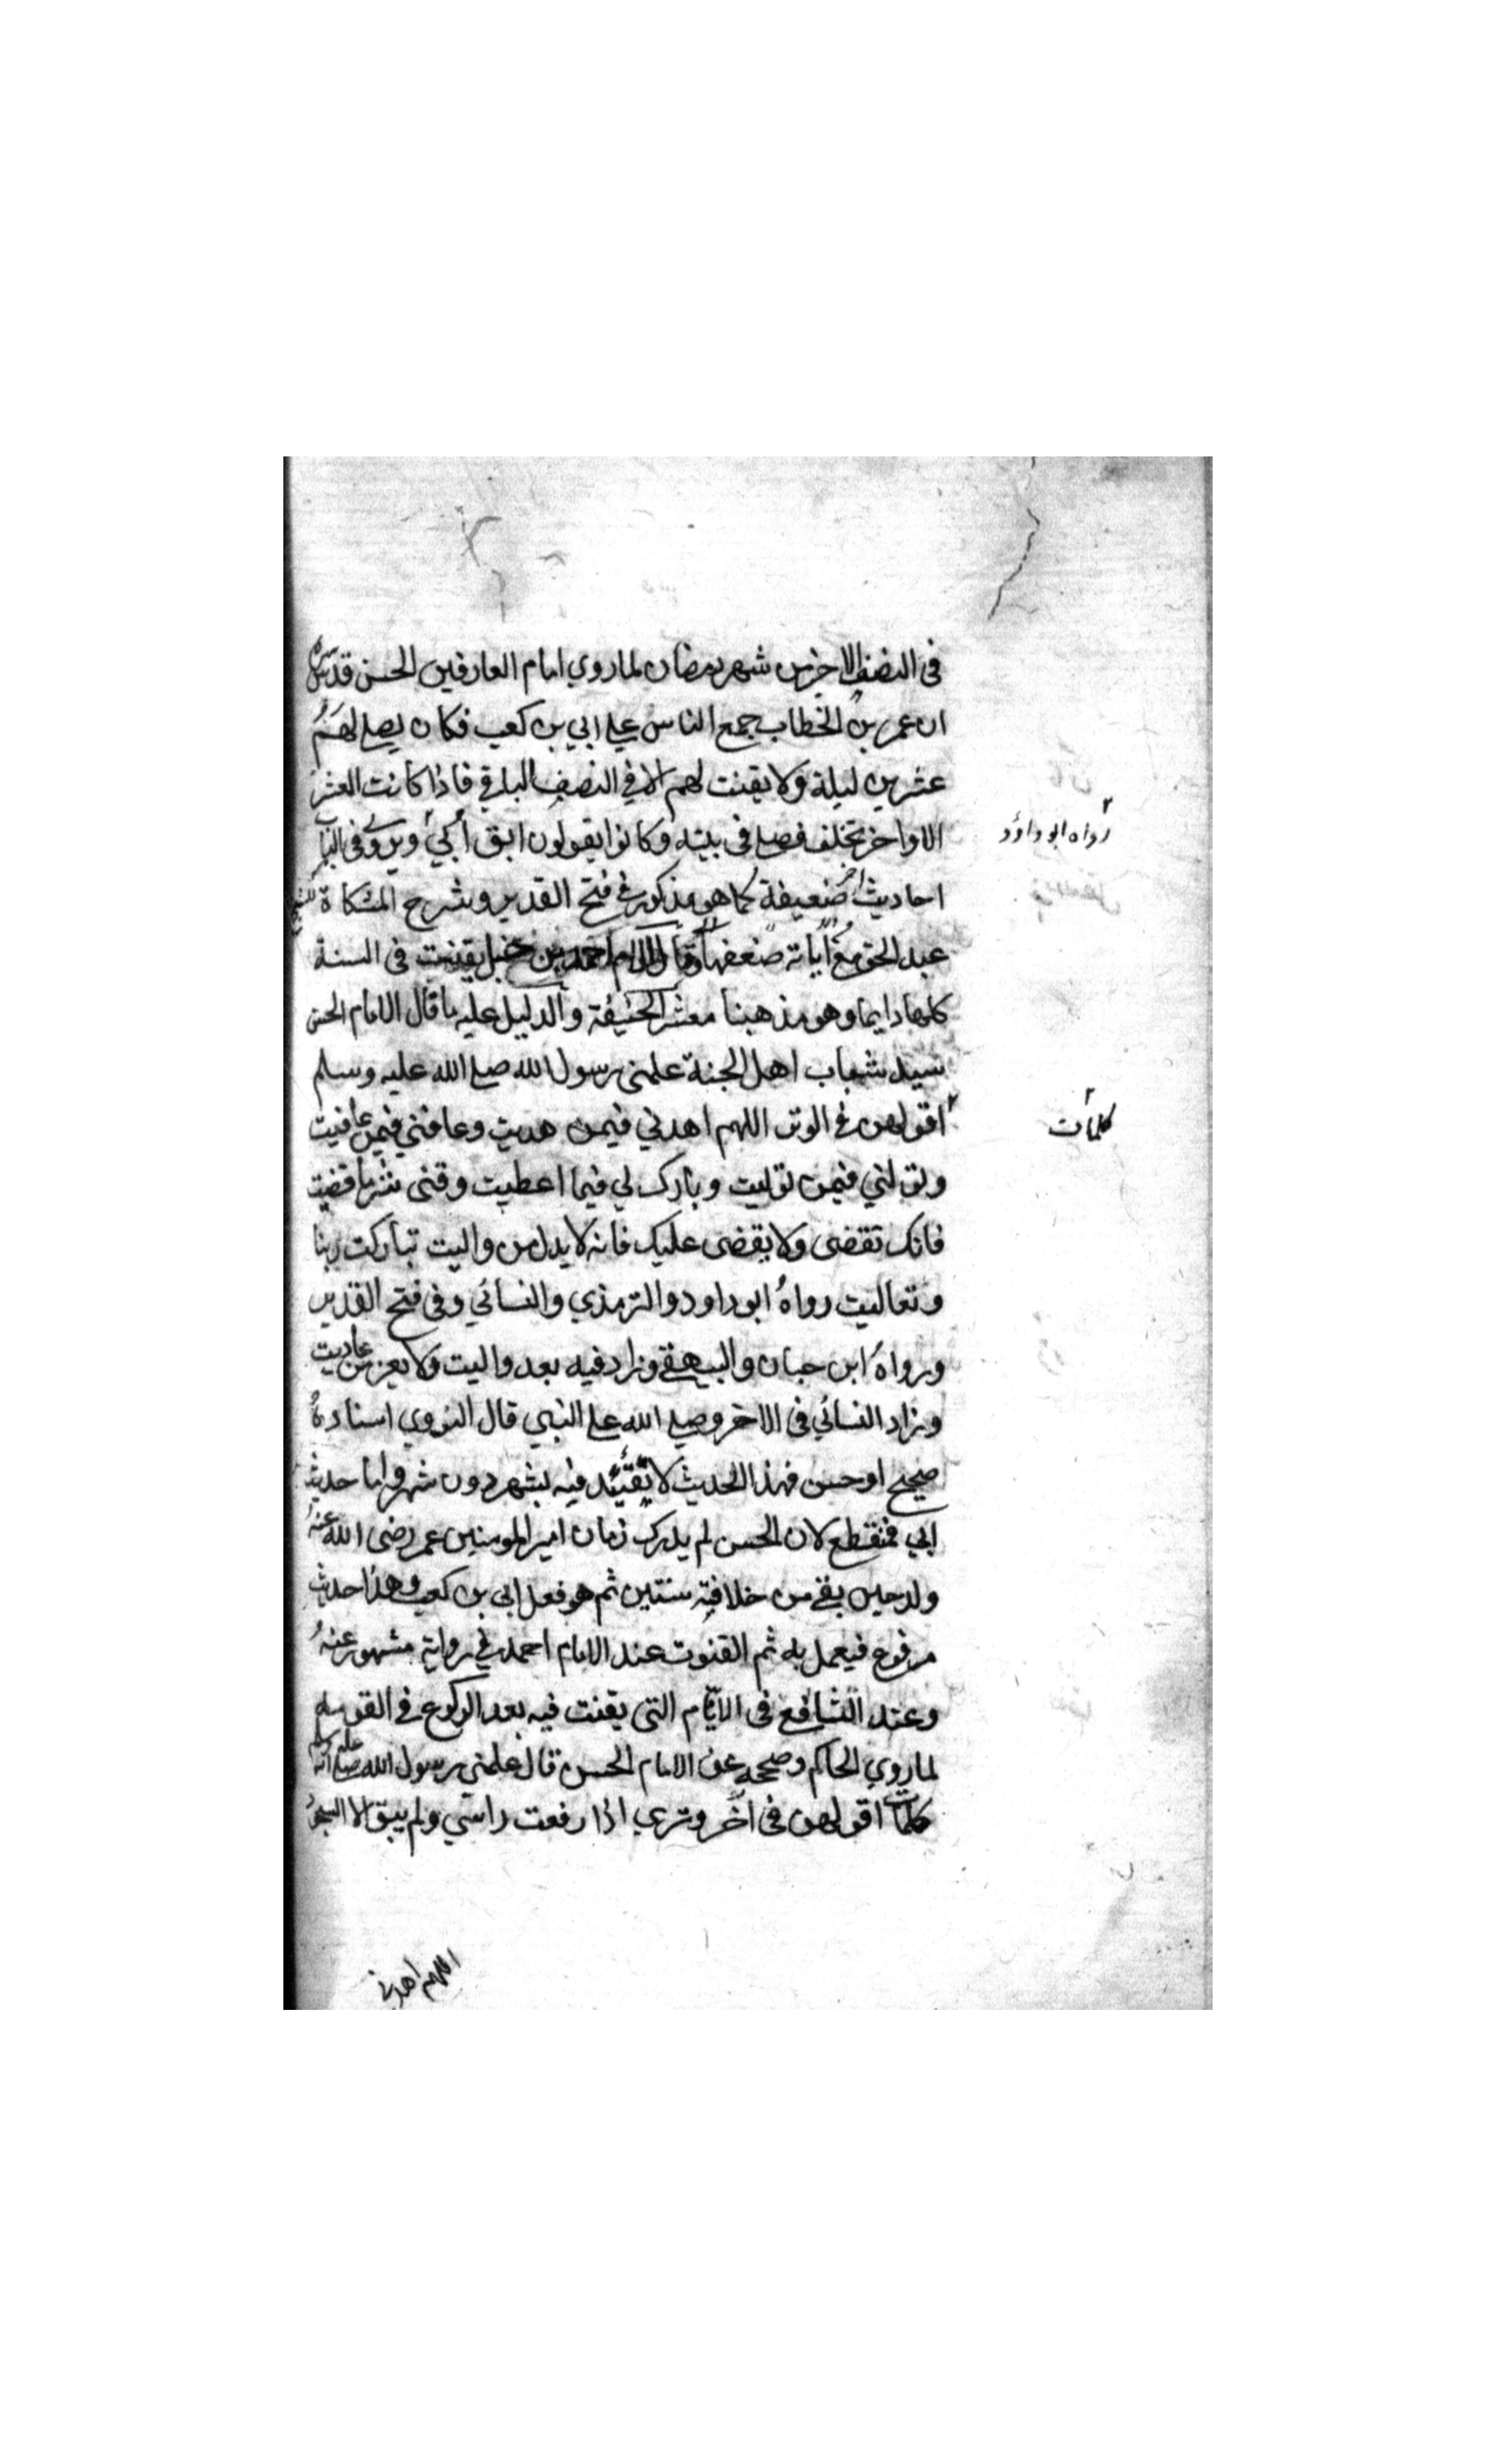 في النصف الاخير من شهر رمضان لما روي امام العارفين الحسن قدس سره
ان عمر بن الخطاب جمع الناس علي ابي بن كعب فكان يصلي لهم
عشرين ليلة ولا يقنت لهم الا في النصف الباقي فاذا كانت العشر
الاواخر تخلف فصلي في بيته وكانوا يقولون ابق أُبَيّ ويروي في الباب
رواه ابو داؤد
احاديث اخر ضعيفة كما هو مذكور في فتح القدير وشرح المشكاة للشيخ
عبد الحق مع أبانة ضعفها وقال الامام احمد بن حنبل يقنت في السنة
كلها دايما وهو مذهبنا معشر الحنيفة والدليل عليه ما قال الامام الحسن
سيد شباب اهل الجنة علمني رسول الله صلي الله عليه وسلم
كلمات
اقولهن في الوتر اللهم اهدني فيمن هديت وعافني فيمن عافيت
وتولني فيمن توليت وبارك لي فيما اعطيت وقني شر ما قضيت
فانك تقضي ولا يقضي عليك فانه لا يذل من واليت تباركت ربنا
وتعاليت رواه ابو داود والترمذي والنسائي وفي فتح القدير
ورواه ابن حبان والبيهقي وزاد فيه بعد واليت ولا يعز من عاديت
وزاد النسائي في الاخر وصلي الله علي النبي قال النووي اسناده
صحيح او حسن فهذا الحديث لا تقيّد فيه بشهر دون شهر واما حديث
ابي فمنقطع لان الحسن لم يدرك زمان امير المومنين عمر رضي الله عنه
ولد حين بقي من خلافته سنتين ثم هو فعل ابي بن كعب وهذا حديث
مرفوع فيعمل به ثم القنوت عند الامام احمد في رواية مشهور عنه
وعند الشافعي في الايّام التي يقنت فيه بعد الركوع في القومة
لما روي الحاكم وصححه عن الامام الحسن قال علمني رسول الله صلي الله عليه وسلم
كلمات اقولهن في اخر وتري اذا رفعت راسي ولم يبق الا السجود
اللهم اهدني